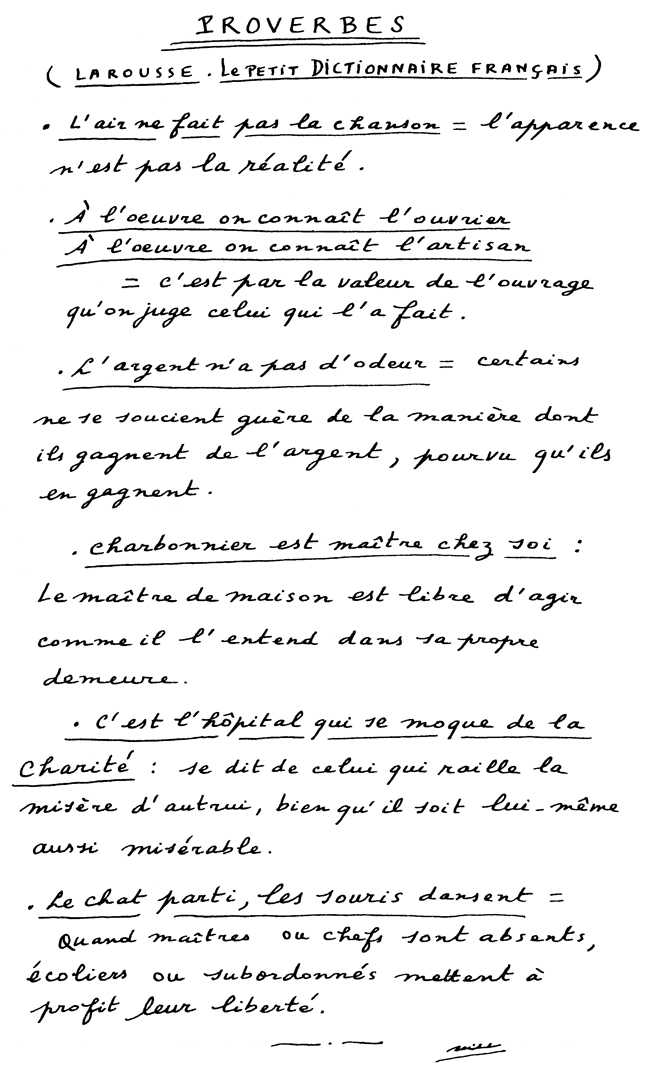 PROVERBES
( LAROUSSE . Le PETIT DICTIONNAIRE FRANÇAIS )
. L'air ne fait pas la chanson = l'apparence
n'est pas la réalité .
. À l'oeuvre on connaît l'ouvrier
À l'oeuvre on connaît l'artisan
= c'est par la valeur de l'ouvrage
qu'on juge celui qui l'a fait .
. L'argent n'a pas d'odeur = certains
ne se soucient guère de la manière dont
ils gagnent de l'argent , pourvu qu'ils
en gagnent .
. Charbonnier est maître chez soi :
Le maître de maison est libre d'agir
comme il l'entend dans sa propre
demeure .
. C'est l'hôpital qui se moque de la
Charité : se dit de celui qui raille la
misère d'autrui , bien qu'il soit lui-même
aussi misérable .
. Le chat parti , les souris dansent =
Quand maîtres ou chefs sont absents ,
écoliers ou subordonnés mettent à
profit leur liberté .